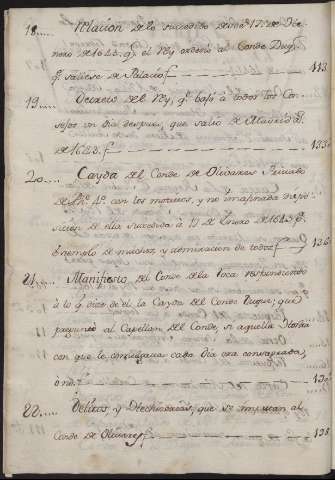 18..... Relacion de lo sucedido desde 17. de He-
nero de 1643. q.e el Rey ordenó al Conde Duq.e
q.e saliese de Palacio 113.
19..... Decreto del Rey, q.e bajó à todos los Con-
sejos un dia despues, que salio de Madrid
de 1643. 135
20..... Cayda del Conde de Olivares Privado
de Ph.e 4.o con los motivos, y no imaginada dispo-
sicion de ella sucedida à 17 de Enero de 1643 p.a
exemplo de muchos, y admiracion de todos 136
21..... Manifiesto del Conde de la Roca respondiendo
à lo q.e dice de el la Cayda del Conde Duque; que
pregunto al Capellan del Conde, si aquella Hostia
con que le comulgaba cada dia era consagrada,
ó no?
22..... Delitos, y Hechicerias, que se imputan al
Conde de Olivares 198